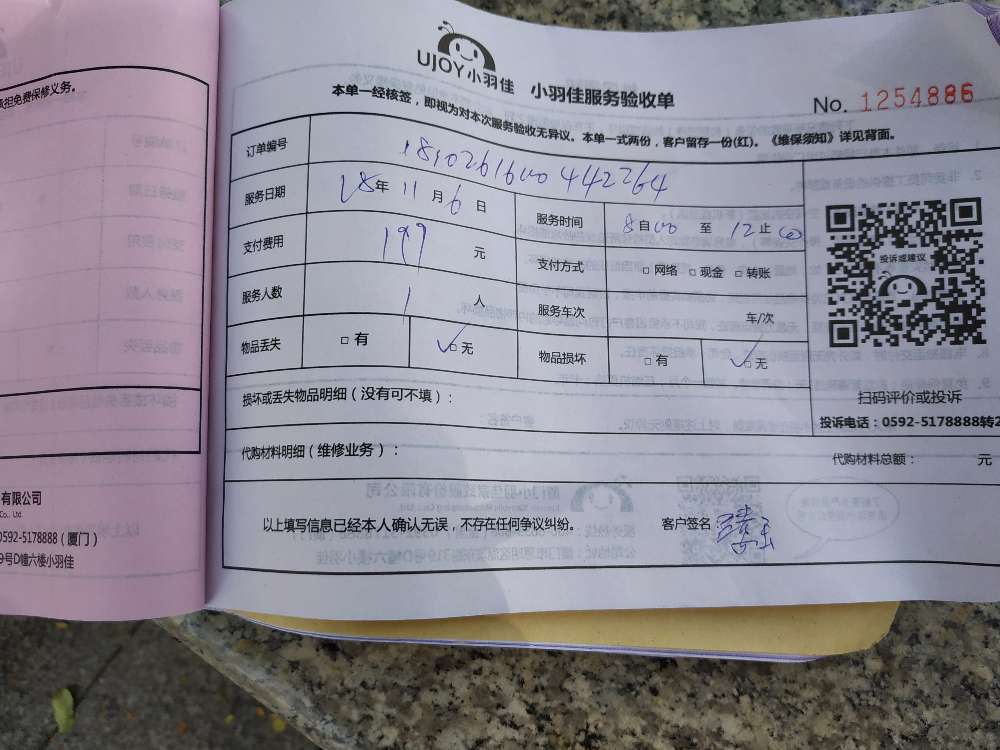 承担免费保修义务。
UJOY小羽佳 小羽佳服务验收单
No. 1254886
本单一经核签，即视为对本次服务验收无异议。本单一式两份，客户留存一份(红)。《维保须知》详见背面。
订单编号
服务日期 18年 11月 6日 服务时间 8自00至12止00
支付费用 199 元 支付方式 □网络 □现金 □转账
服务人数 1 人 服务车次 车/次
物品丢失 □有 ✓□无 物品损坏 □有 ✓□无
投诉或建议
扫码评价或投诉
投诉电话：0592-5178888转2
损坏或丢失物品明细（没有可不填）：
代购材料明细（维修业务）： 代购材料总额： 元
以上填写信息已经本人确认无误，不存在任何争议纠纷。 客户签名
有限公司
Co., Ltd.
0592-5178888（厦门）
9号D幢六楼小羽佳